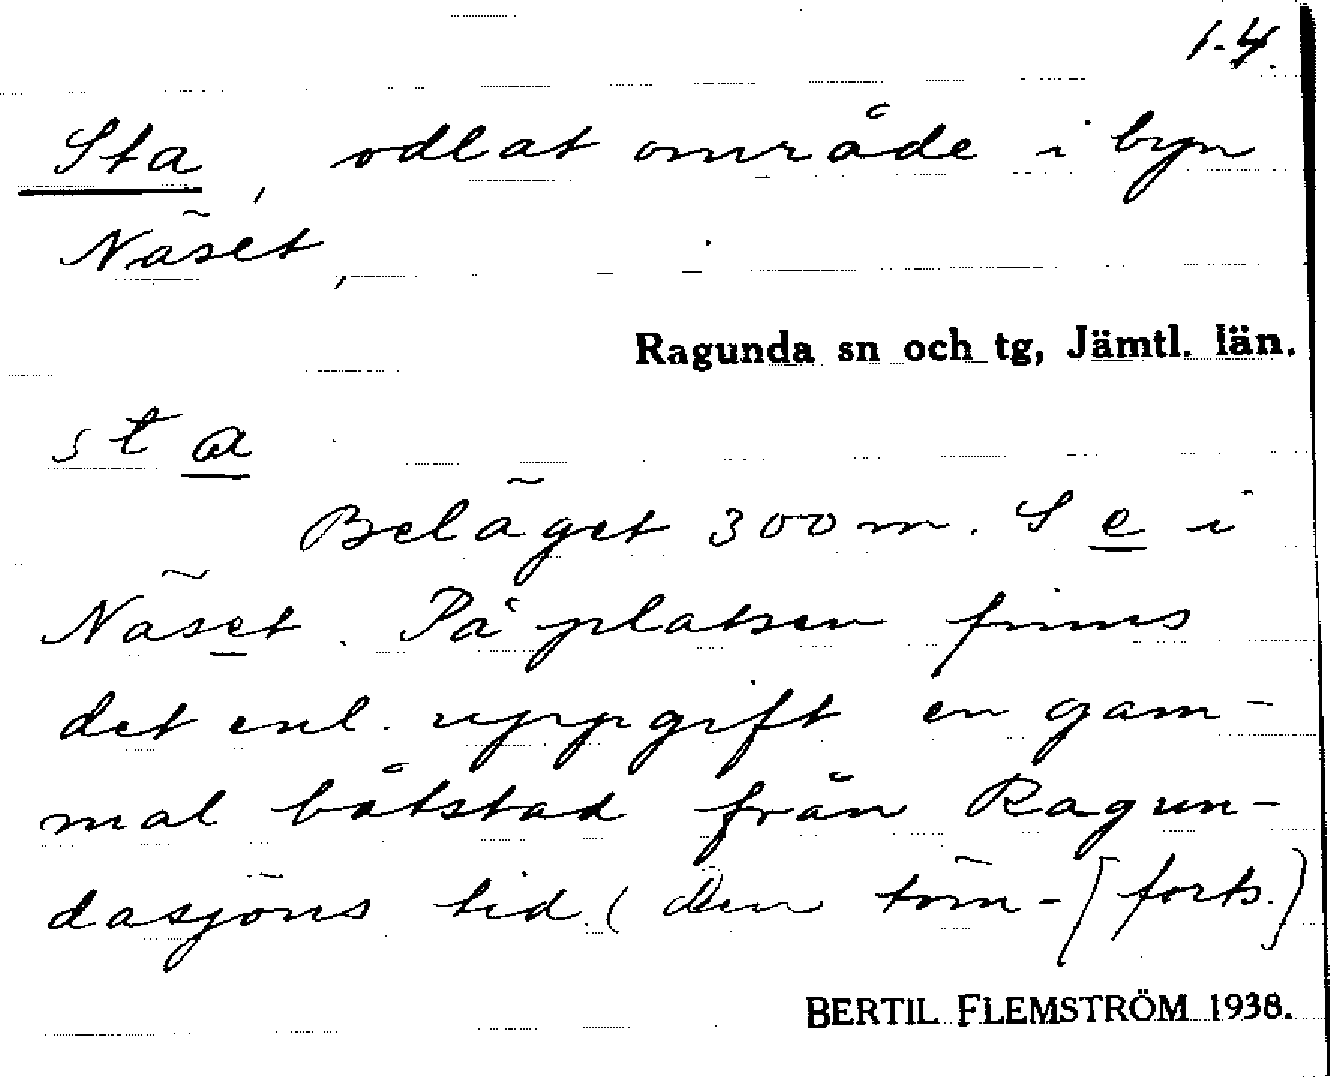 1-4.
Sta, odlat område i byn
Näset,
Ragunda sn och tg, Jämtl. län.
sta
Beläget 300 m. S e i
Näset. På platsen finns
det enl. uppgift en gam-
mal båtstad från Ragun-
dasjöns tid (den töm- (forts.)
BERTIL FLEMSTRÖM 1938.